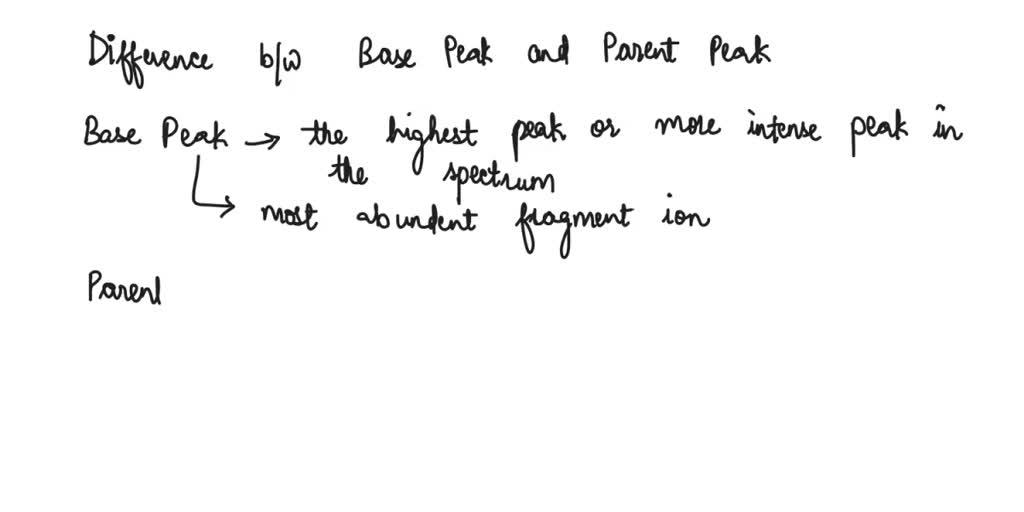 Difference b/w Base Peak and Parent Peak
Base Peak → the highest peak or more intense peak in
the spectrum
most abundent fragment ion
Parent